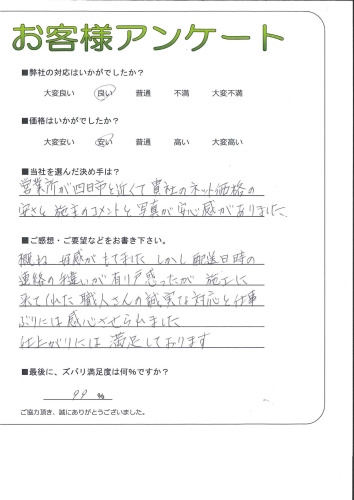 お客様アンケート
■弊社の対応はいかがでしたか？
大変良い 良い 普通 不満 大変不満
■価格はいかがでしたか？
大変安い 安い 普通 高い 大変高い
■当社を選んだ決め手は？
営業所が四日市と近くて貴社のネット価格の
安さと施主のコメントと写真が安心感がありました、
■ご感想・ご要望などをお書き下さい。
概ね 好感がもてました しかし 配送日時の
連絡の違いが有り戸惑ったが 施工に
来てくれた 職人さんの誠実な対応と仕事
ぶりには 感心させられました
仕上がりには 満足しております
■最後に、ズバリ満足度は何%ですか？
99 %
ご協力頂き、誠にありがとうございました。